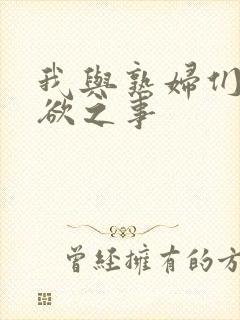 我與熟婦们
欲之事
曾經擁有的方